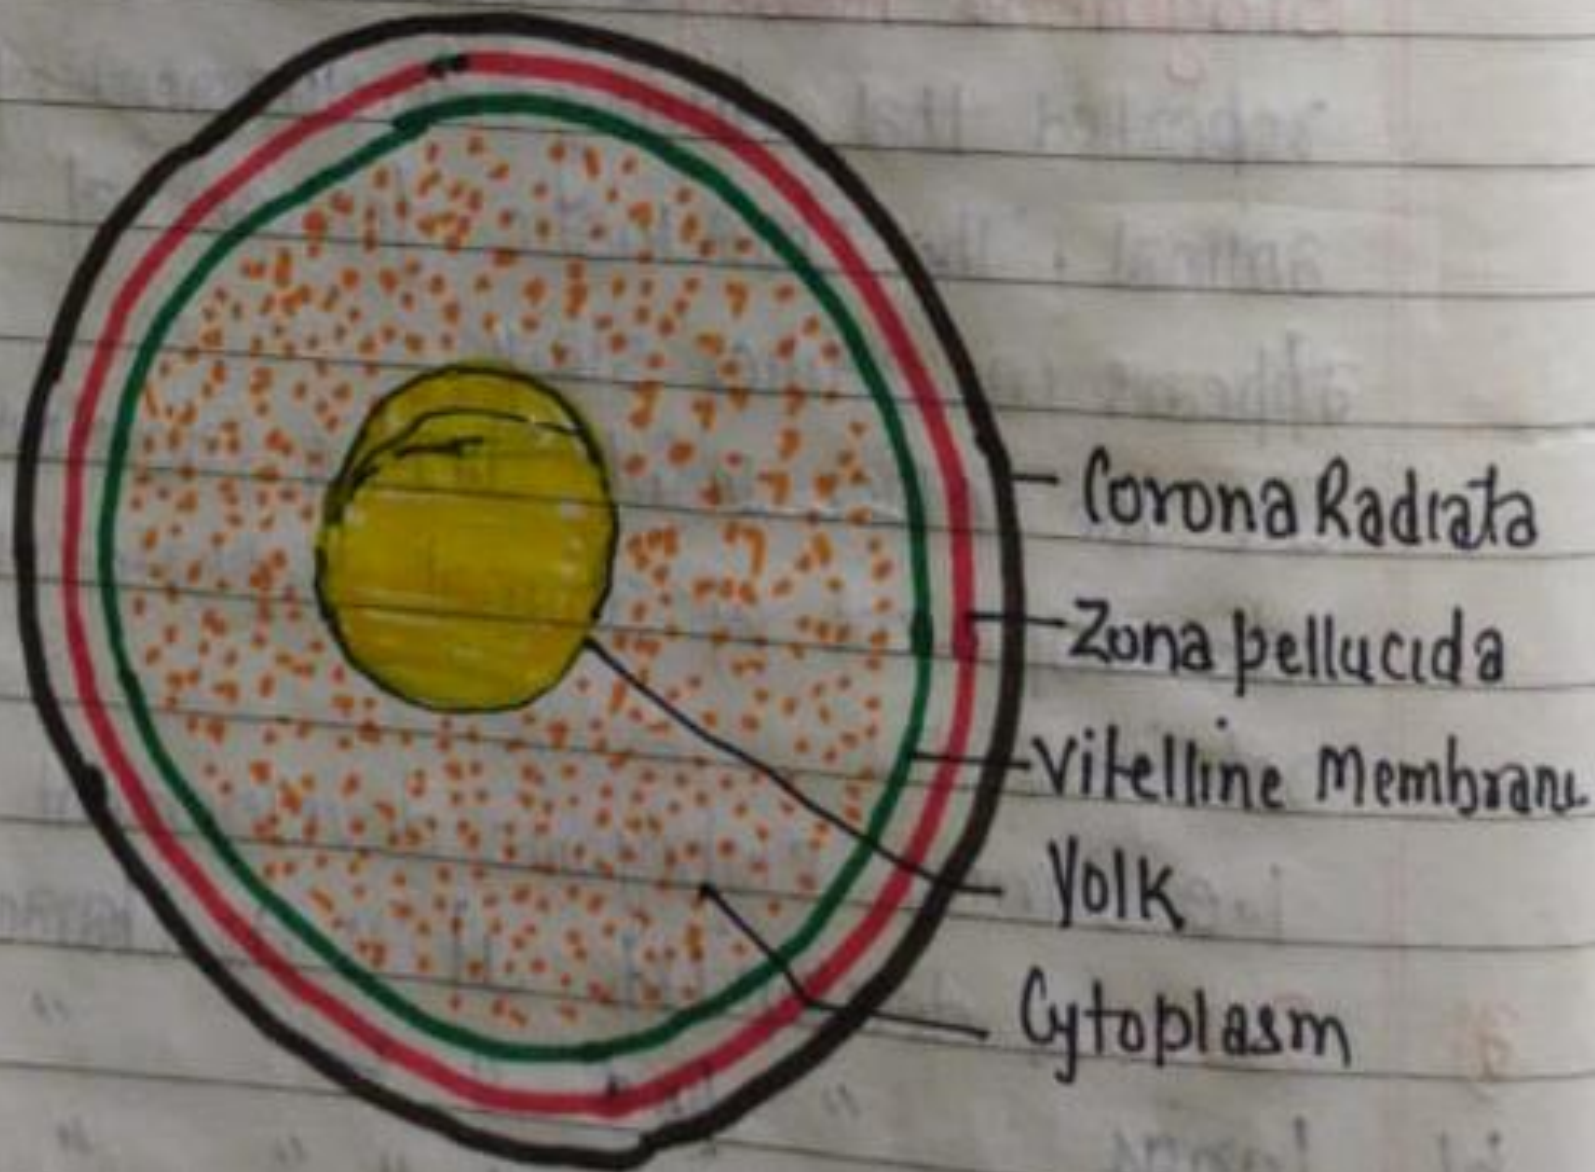 Corona Radiata
Zona pellucida
Vitelline Membrane
Yolk
Cytoplasm